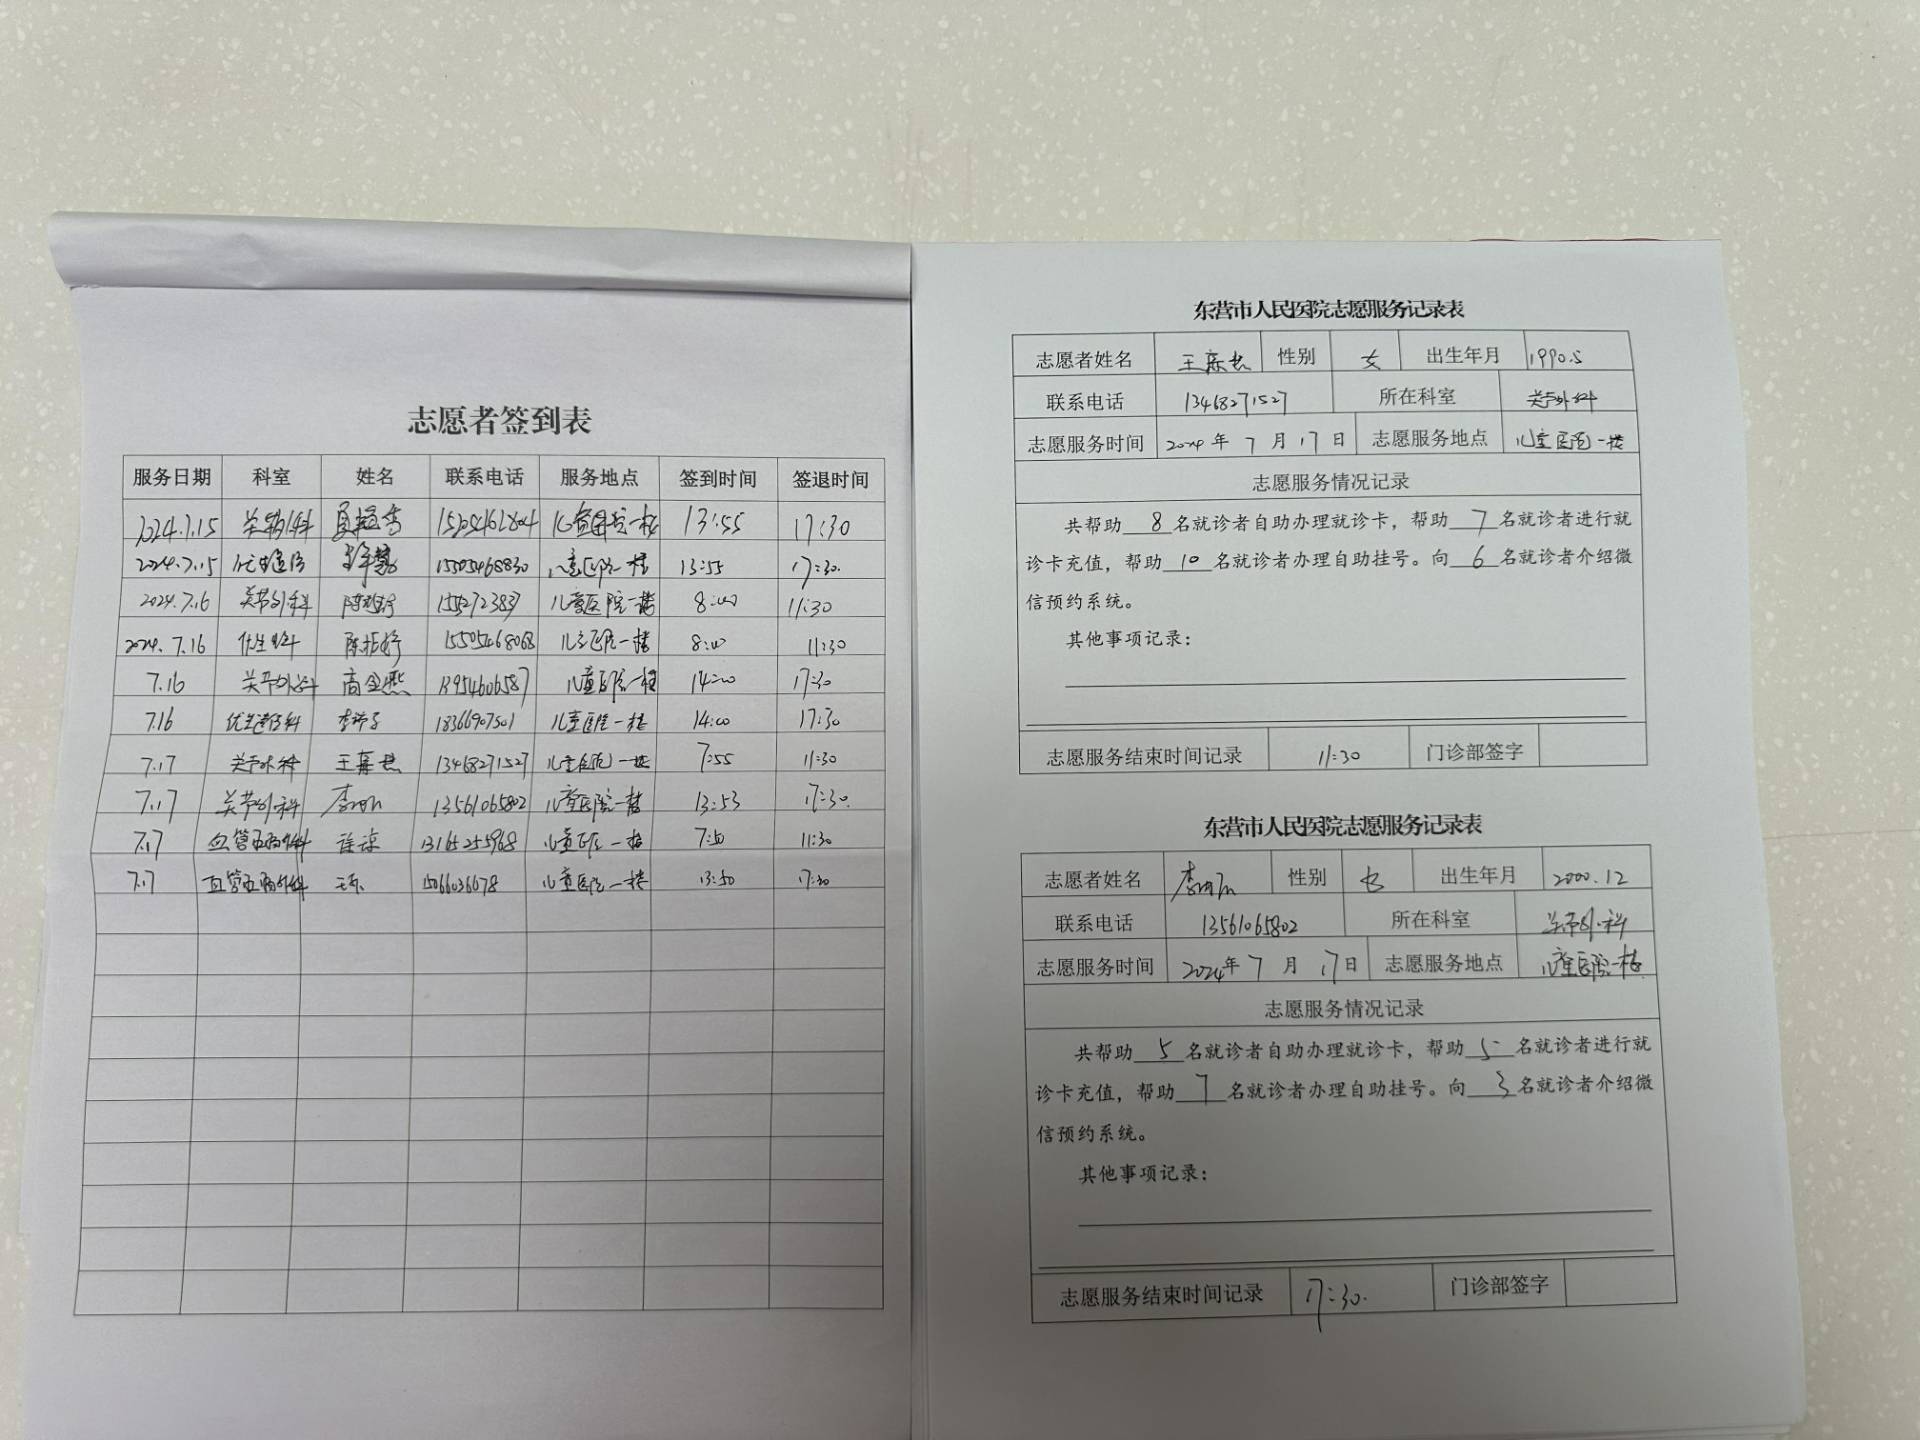 志愿者签到表
服务日期 科室 姓名 联系电话 服务地点 签到时间 签退时间
2024.7.15 13:55 17:30
2024.7.15 15505468830 儿童医院一楼 13:55 17:30.
2024.7.16 关节外科 儿童医院一楼 8:00 11:30
2024.7.16 15505468068 一楼 8:00 11:30
7.16 关节外科 高金燕 13954606587 儿童医院一楼 14:00 17:30
7.16 18366907501 儿童医院一楼 14:00 17:30
7.17 关节外科 13468271527 儿童医院一楼 7:55 11:30
7.17 关节外科 13561065802 儿童医院一楼 13:53 17:30.
7.17 13165255968 儿童医院一楼 7:50 11:30
7.17 15066036678 儿童医院一楼 13:50 17:30
东营市人民医院志愿服务记录表
志愿者姓名 性别 女 出生年月 1990.5
联系电话 13468271527 所在科室 关节外科
志愿服务时间 2024年 7 月 17 日 志愿服务地点 儿童医院一楼
志愿服务情况记录
共帮助 8 名就诊者自助办理就诊卡，帮助 7 名就诊者进行就
诊卡充值，帮助 10 名就诊者办理自助挂号。向 6 名就诊者介绍微
信预约系统。
其他事项记录：
志愿服务结束时间记录 11:30 门诊部签字
东营市人民医院志愿服务记录表
志愿者姓名 性别 女 出生年月 2000.12
联系电话 13561065802 所在科室 关节外科
志愿服务时间 2024年 7 月 17日 志愿服务地点 儿童医院一楼
志愿服务情况记录
共帮助 5 名就诊者自助办理就诊卡，帮助 5 名就诊者进行就
诊卡充值，帮助 7 名就诊者办理自助挂号。向 3 名就诊者介绍微
信预约系统。
其他事项记录：
志愿服务结束时间记录 17:30. 门诊部签字